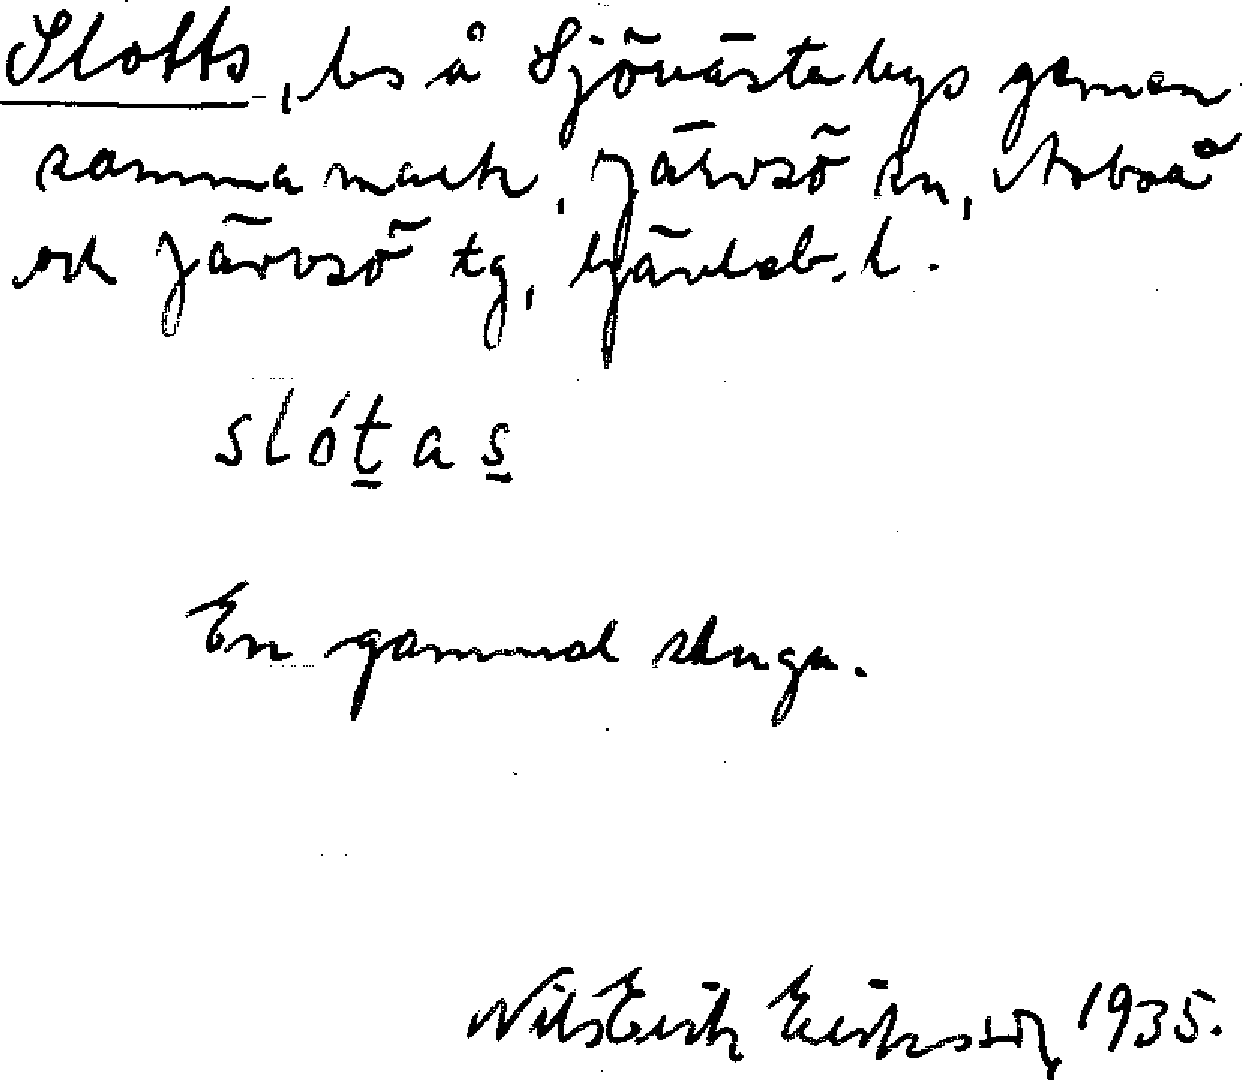 Slotts, bs å Sjövästa bys gemen-
samma mark, Järvsö sn, Arbrå
och Järvsö tg, Gävleb. l.
slótas
En gammal stuga.
Nils Erik Eriksson, 1935.